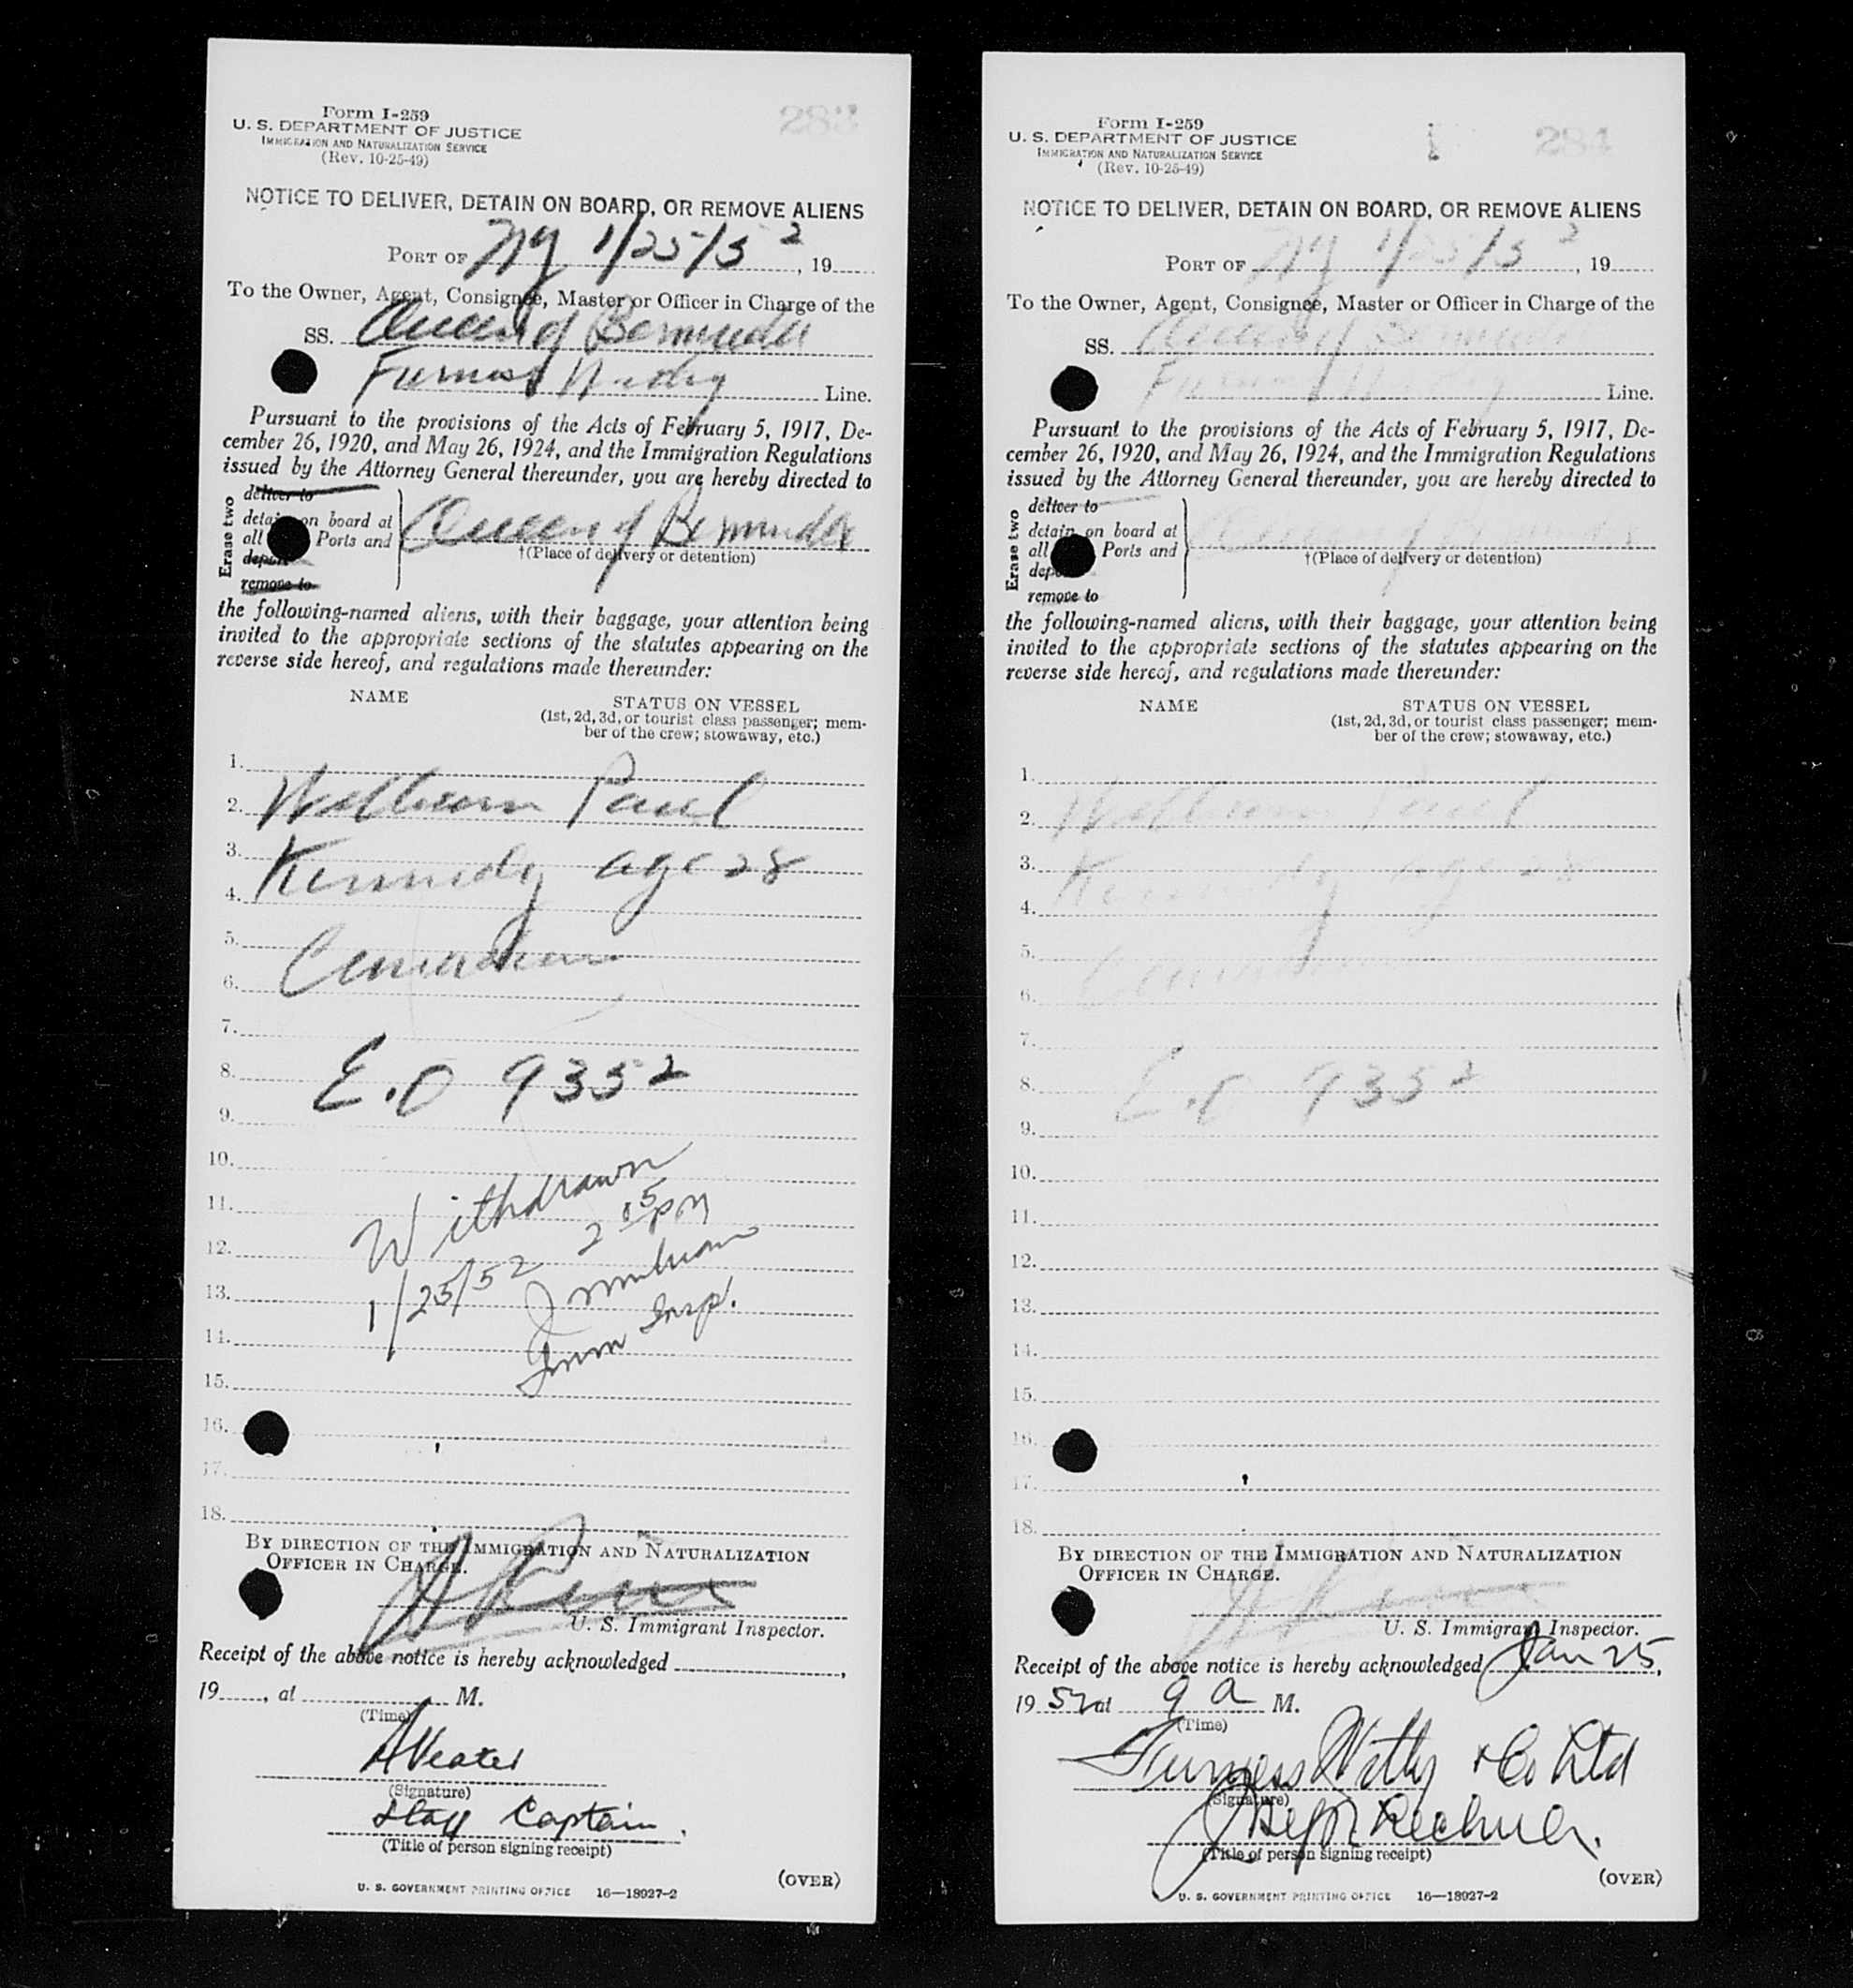 Form I-259
U. S. DEPARTMENT OF JUSTICE
IMMIGRATION AND NATURALIZATION SERVICE
(Rev. 10-25-49)
283
NOTICE TO DELIVER, DETAIN ON BOARD, OR REMOVE ALIENS
PORT OF NY 1/25/52, 19
To the Owner, Agent, Consignee, Master or Officer in Charge of the
SS. Queen of Bermuda
Furness Withy Line.
Pursuant to the provisions of the Acts of February 5, 1917, De-
cember 26, 1920, and May 26, 1924, and the Immigration Regulations
issued by the Attorney General thereunder, you are hereby directed to
Erase two
deliver to
detain on board at
all Ports and
deport
remove to
Queen of Bermuda
†(Place of delivery or detention)
the following-named aliens, with their baggage, your attention being
invited to the appropriate sections of the statutes appearing on the
reverse side hereof, and regulations made thereunder:
NAME STATUS ON VESSEL
(1st, 2d, 3d, or tourist class passenger; mem-
ber of the crew; stowaway, etc.)
1.
2. William Paul
3.
4. Kennedy age 28
5.
6. Canadian
7.
8. E.O 9352
9.
10.
11. Withdrawn
12. 2 05 PM
13. 1/25/52
14. Imm Insp.
15.
16.
17.
18.
BY DIRECTION OF THE IMMIGRATION AND NATURALIZATION
OFFICER IN CHARGE.
U. S. Immigrant Inspector.
Receipt of the above notice is hereby acknowledged ,
19 , at M.
(Time)
(Signature)
Staff Captain.
(Title of person signing receipt)
(OVER)
U. S. GOVERNMENT PRINTING OFFICE 16—18927-2
Form I-259
U. S. DEPARTMENT OF JUSTICE
IMMIGRATION AND NATURALIZATION SERVICE
(Rev. 10-25-49)
284
NOTICE TO DELIVER, DETAIN ON BOARD, OR REMOVE ALIENS
PORT OF NY 1/25/52, 19
To the Owner, Agent, Consignee, Master or Officer in Charge of the
SS. Queen of Bermuda
Furness Withy Line.
Pursuant to the provisions of the Acts of February 5, 1917, De-
cember 26, 1920, and May 26, 1924, and the Immigration Regulations
issued by the Attorney General thereunder, you are hereby directed to
Erase two
deliver to
detain on board at
all Ports and
deport
remove to
Queen of Bermuda
†(Place of delivery or detention)
the following-named aliens, with their baggage, your attention being
invited to the appropriate sections of the statutes appearing on the
reverse side hereof, and regulations made thereunder:
NAME STATUS ON VESSEL
(1st, 2d, 3d, or tourist class passenger; mem-
ber of the crew; stowaway, etc.)
1.
2. William Paul
3.
4. Kennedy age 28
5.
6. Canadian
7.
8. E.O 9352
9.
10.
11.
12.
13.
14.
15.
16.
17.
18.
BY DIRECTION OF THE IMMIGRATION AND NATURALIZATION
OFFICER IN CHARGE.
U. S. Immigrant Inspector.
Receipt of the above notice is hereby acknowledged Jan 25,
19 52 at 9 a M.
(Time)
Furness Withy & Co Ltd
(Signature)
(Title of person signing receipt)
(OVER)
U. S. GOVERNMENT PRINTING OFFICE 16—18927-2